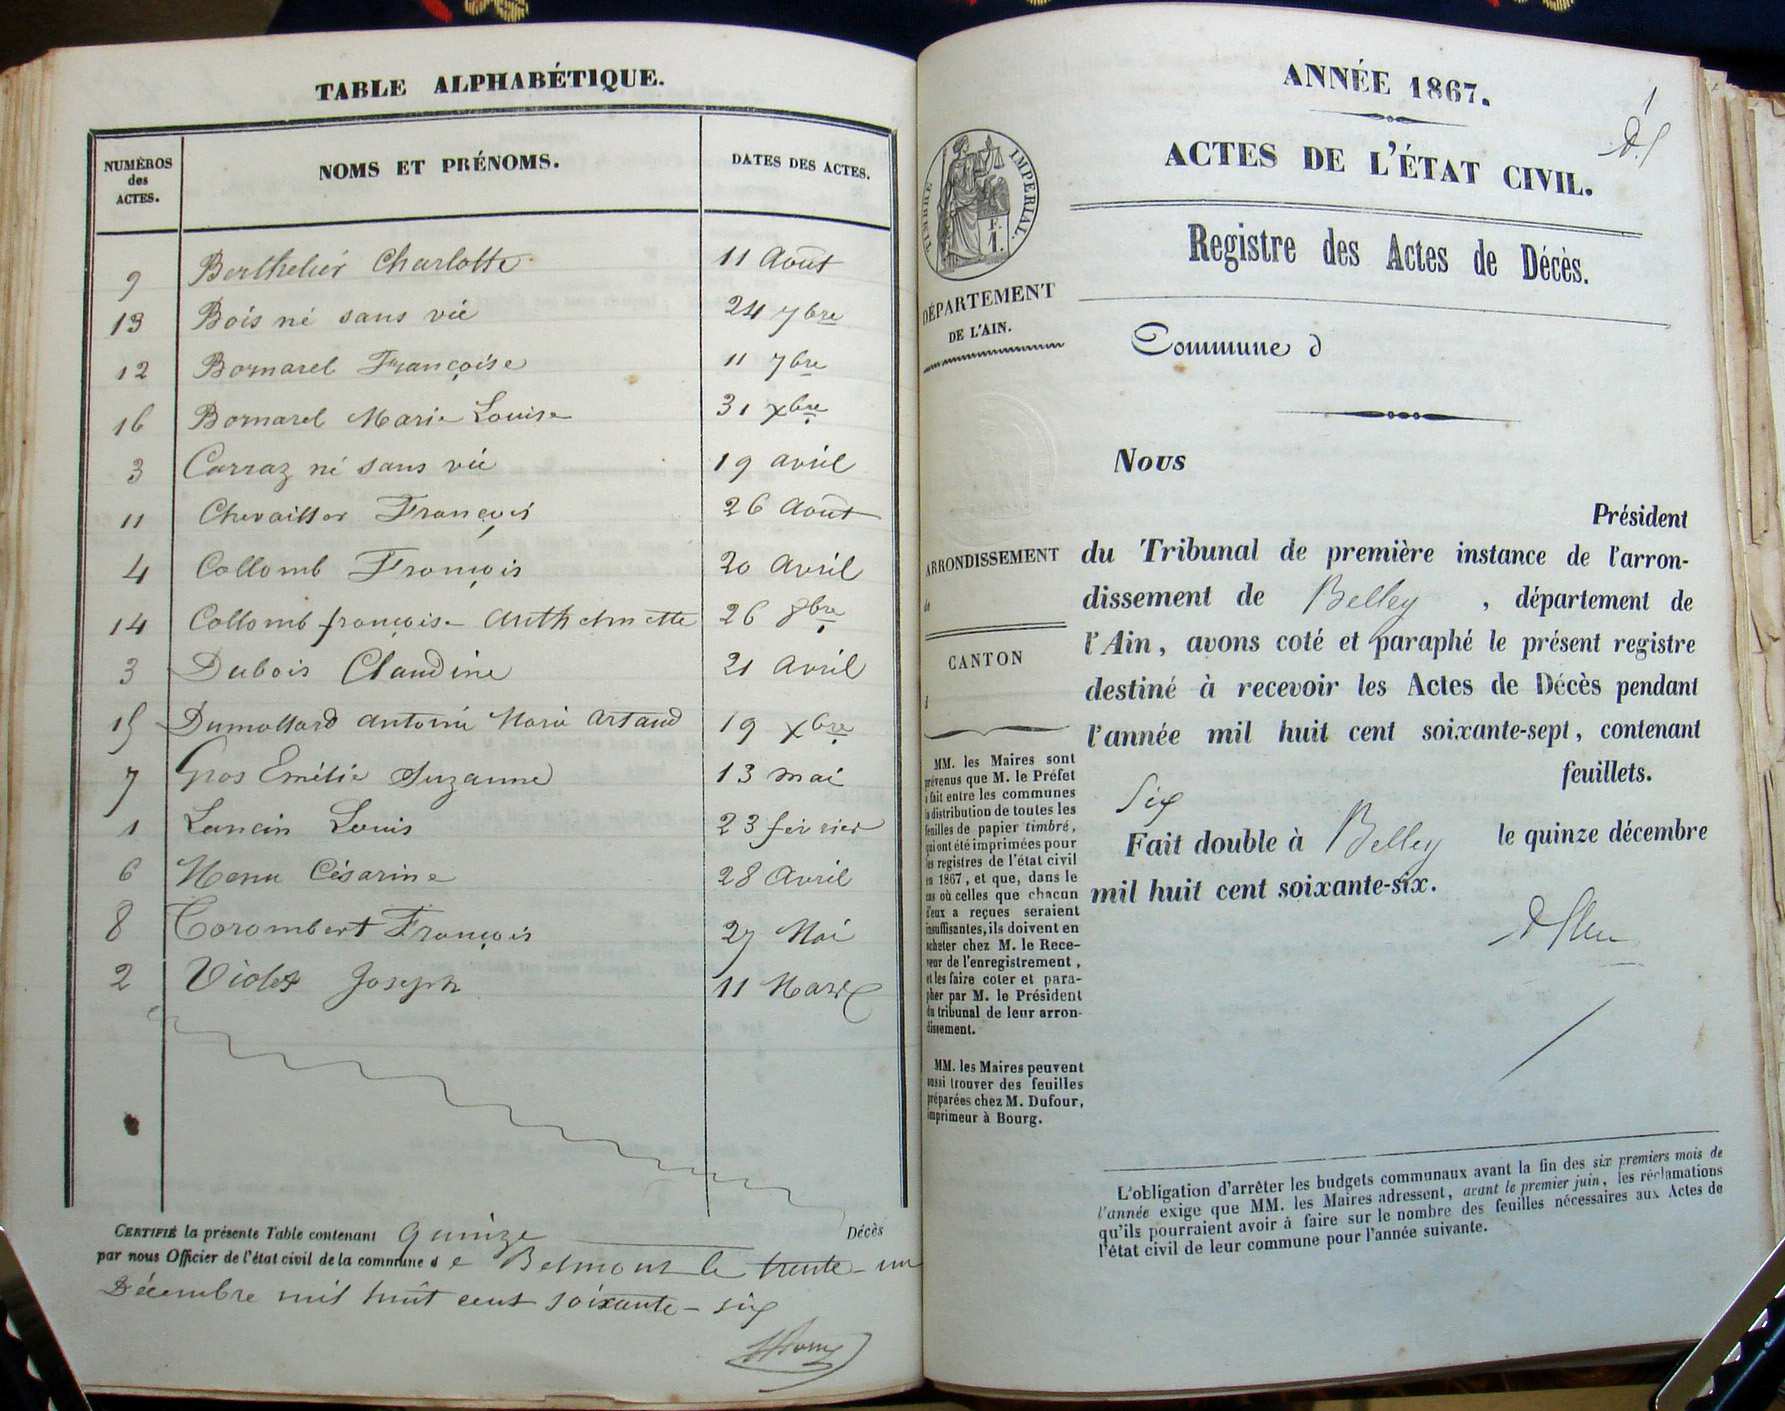 TABLE ALPHABÉTIQUE.
NUMÉROS des ACTES. NOMS ET PRÉNOMS. DATES DES ACTES.
9 Berthelier Charlotte 11 Août
13 Bois né sans vie 24 7bre
12 Bornarel Françoise 11 7bre
16 Bornarel Marie Louise 31 Xbre
3 Carraz né sans vie 19 avril
11 François 26 Août
4 Collomb François 20 Avril
14 Collomb françoise Anthelmette 26 8bre
3 Dubois Claudine 21 Avril
15 Dumollard Antoine Marie Artaud 19 Xbre
7 Gros Emélie Suzanne 13 mai
1 Lancin Louis 23 février
6 Menu Césarine 28 Avril
8 François 27 Mai
2 Violet Joseph 11 Mars
CERTIFIÉ la présente Table contenant quinze Décès
par nous Officier de l'état civil de la commune de Belmont le trente-un
Décembre mil huit cent soixante-six
ANNÉE 1867.
1
ACTES DE L'ÉTAT CIVIL.
Registre des Actes de Décès.
TIMBRE IMPÉRIAL.
F. 1.
DÉPARTEMENT
DE L'AIN.
Commune d
Nous
Président
du Tribunal de première instance de l'arron-
dissement de Belley, département de
l'Ain, avons coté et paraphé le présent registre
destiné à recevoir les Actes de Décès pendant
l'année mil huit cent soixante-sept, contenant
Six feuillets.
Fait double à Belley le quinze décembre
mil huit cent soixante-six.
ARRONDISSEMENT
de
CANTON
d
MM. les Maires sont
prévenus que M. le Préfet
a fait entre les communes
la distribution de toutes les
feuilles de papier timbré,
qui ont été imprimées pour
les registres de l'état civil
en 1867, et que, dans le
cas où celles que chacun
d'eux a reçues seraient
insuffisantes, ils doivent en
acheter chez M. le Rece-
veur de l'enregistrement,
et les faire coter et para-
pher par M. le Président
du tribunal de leur arron-
dissement.
MM. les Maires peuvent
aussi trouver des feuilles
préparées chez M. Dufour,
imprimeur à Bourg.
L'obligation d'arrêter les budgets communaux avant la fin des six premiers mois de
l'année exige que MM. les Maires adressent, avant le premier juin, les réclamations
qu'ils pourraient avoir à faire sur le nombre des feuilles nécessaires aux Actes de
l'état civil de leur commune pour l'année suivante.